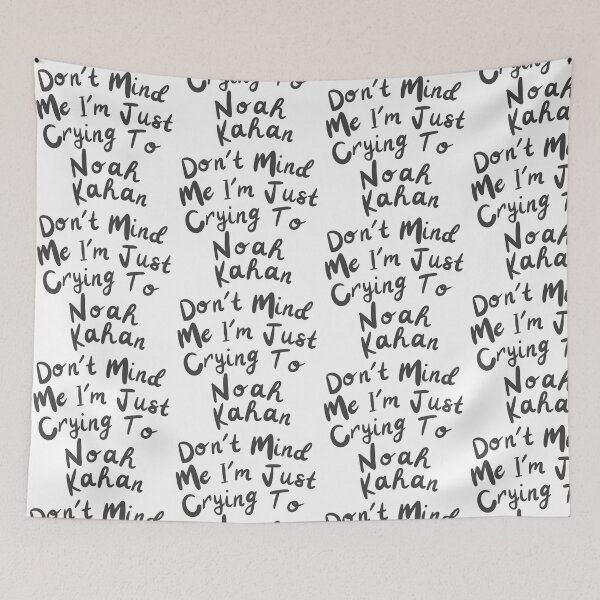 Don't Mind
Me I'm Just
Crying To
Noah
Kahan
Don't Mind
Me I'm Just
Crying To
Noah
Kahan
Don't Mind
Me I'm Just
Crying To
Noah
Kahan
Don't Mind
Crying To
Noah
Kahan
Don't Mind
Me I'm Just
Crying To
Noah
Kahan
Don't Mind
Me I'm Just
Crying To
Noah
Kahan
Don't Mind
Me I'm Just
Crying To
Don't Mind
Me I'm Just
Crying To
Noah
Kahan
Don't Mind
Me I'm Just
Crying To
Noah
Kahan
Don't Mind
Me I'm Just
Crying To
Noah
Kahan
Don't Mind
Crying To
Noah
Kahan
Don't M
Me I'm Just
Crying T
Noah
Kahan
Don't M
Me I'm Just
Crying T
Noah
Kahan
Don't M
Me I'm Just
Crying T